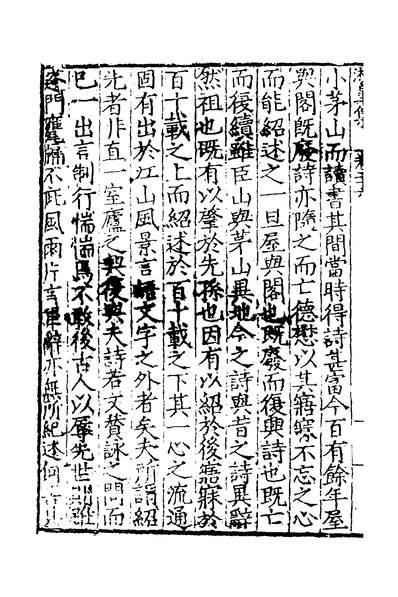 小茅山而讀書其間當時得詩甚富今百有餘年屋
與閣既廢詩亦隨之而亡德懋以其寤寐不忘之心
而能紹述之一旦屋與閣也既廢而復興詩也既亡
而復續雖臣山與茅山異地今之詩與昔之詩異辭
然祖也既有以肇於先孫也因有以紹於後寤寐於
百十載之上而紹述於百十載之下其一心之流通
固有出於江山風景言語文字之外者矣夫所謂紹
先者非直一室廬之契復與夫詩若文賛詠之間而
已一出言制行惴惴焉不敢後古人以辱先世則雖
蓬門甕牖不庇風雨片言隻辭亦無所紀述何